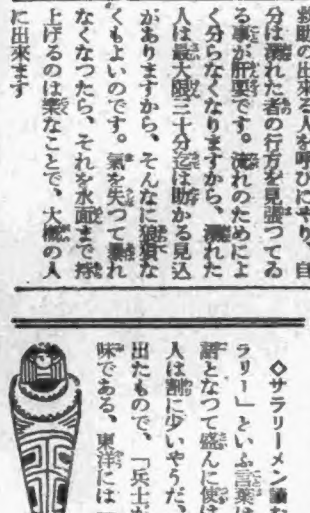 救助の出来る人を呼びにやり、自
分は溺れた者の行方を見張つてゐ
る事が肝要です。流れのためによ
く分らなくなりますから、溺れた
人は最大限三十分迄は助かる見込
がありますから、そんなに狼狽な
くもよいのです。氣を失つて暴れ
なくなつたら、それを水面まで持
上げるのは樂なことで、大概の人
に出來ます
◇サラリーメン議な
ラリー」といふ言葉は
語となつて盛んに使は
人は割に少いやうだ、
出たもので、「兵士が
味である、東洋には「